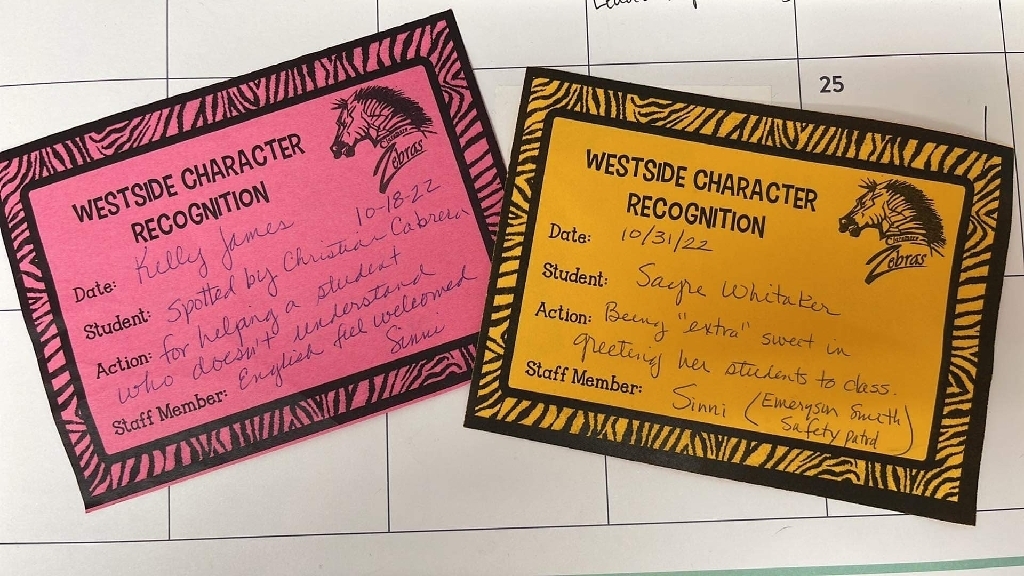 25
WESTSIDE CHARACTER
RECOGNITION
Zebras
10-18-22
Date: Kelly James
Student: spotted by Christian Cabrera
Action: for helping a student
who doesn't understand
Staff Member: English feel welcomed
Sinni
WESTSIDE CHARACTER
RECOGNITION
Zebras
Date: 10/31/22
Student: Sayre Whitaker
Action: Being "extra" sweet in
greeting her students to class.
Staff Member: Sinni (Emeryson Smith
Safety Patrol)